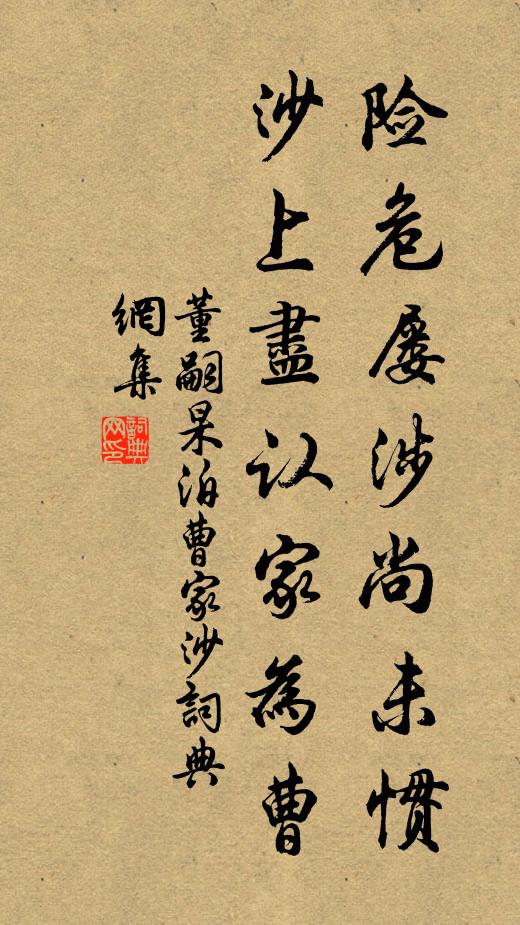 险危屡涉尚未惯
沙上盡认家為曹
董嗣杲泊曹家沙詞典
網集
詞典
网印